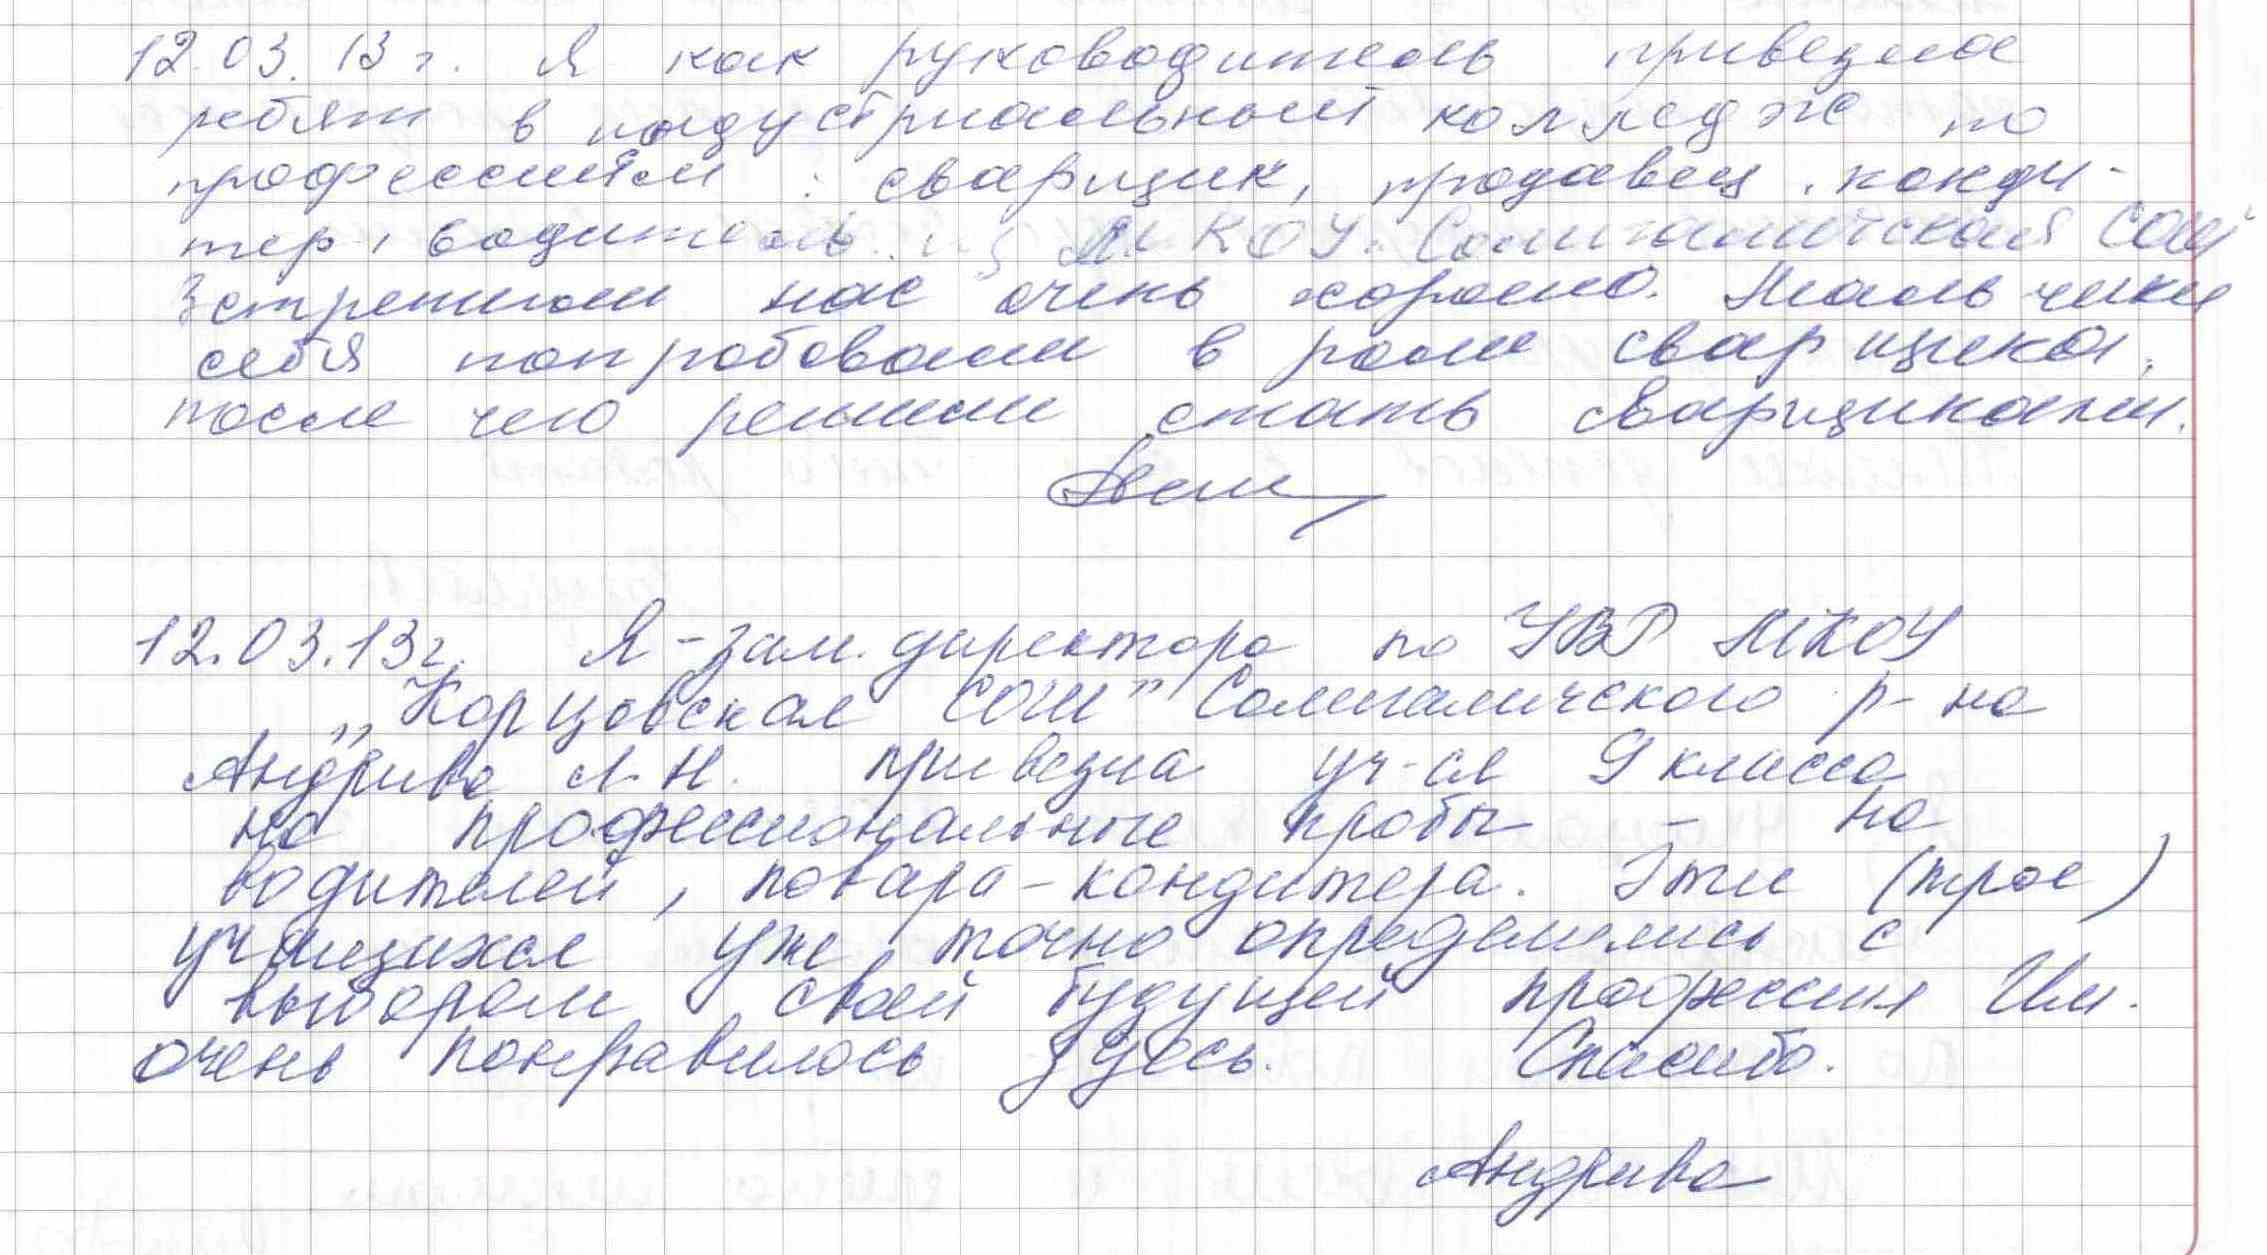 12.03.13 г. Я как руководитель привезла
ребят в индустриальный колледж по
профессиям: сварщик, продавец, конди-
тер, водитель из МКОУ Солигаличская СОШ
Встретили нас очень хорошо. Мальчики
себя попробовали в роли сварщика,
после чего решили стать сварщиками.
12.03.13г. Я - зам. директора по УВР МКОУ
„Корцовская СОШ" Солигаличского р-на
Андрива Л.Н. привезла уч-ся 9 класса
на профессиональные пробы - на
водителей, повара-кондитера. Эти (трое)
учащихся уже точно определились с
выбором своей будущей профессия Им
очень понравилось здесь. Спасибо.
Андрива